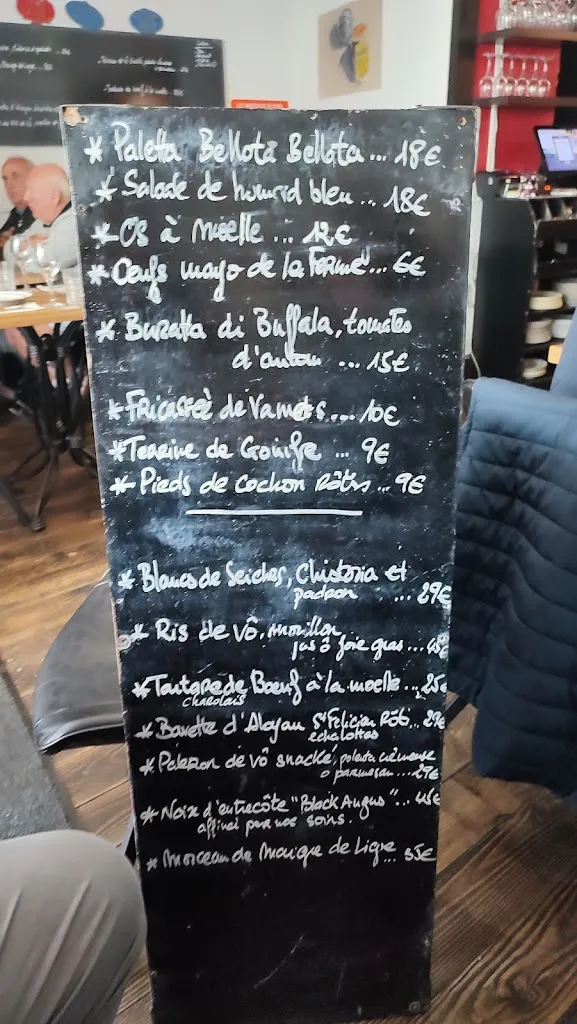 * Paletta Bellota Bellota ... 18€
* Salade de homard bleu ... 18€
* Os à Moelle ... 12€
* Oeufs mayo de la Ferme ... 6€
* Buratta di Buffala, tomates
d'antan ... 15€
* Fricassée de Vamets ... 10€
* Terrine de Gouiffe ... 9€
* Pieds de cochon Rôtis ... 9€
* Blancs de Seiches, Chistoria et
padron ... 29€
* Ris de vô, morillon
jus ô foie gras ... 45€
* Tartare de Boeuf à la moelle ... 25€
charolais
* Bavette d'Aloyau St Felicien Rôti ... 27€
echalottes
* Paleron de vô snacké, polenta crémeuse
ô parmesan ... 29€
* Noix d'entrecôte "Black Angus" ... 45€
affiné par nos soins.
* Morceau de Maigre de Ligne ... 35€